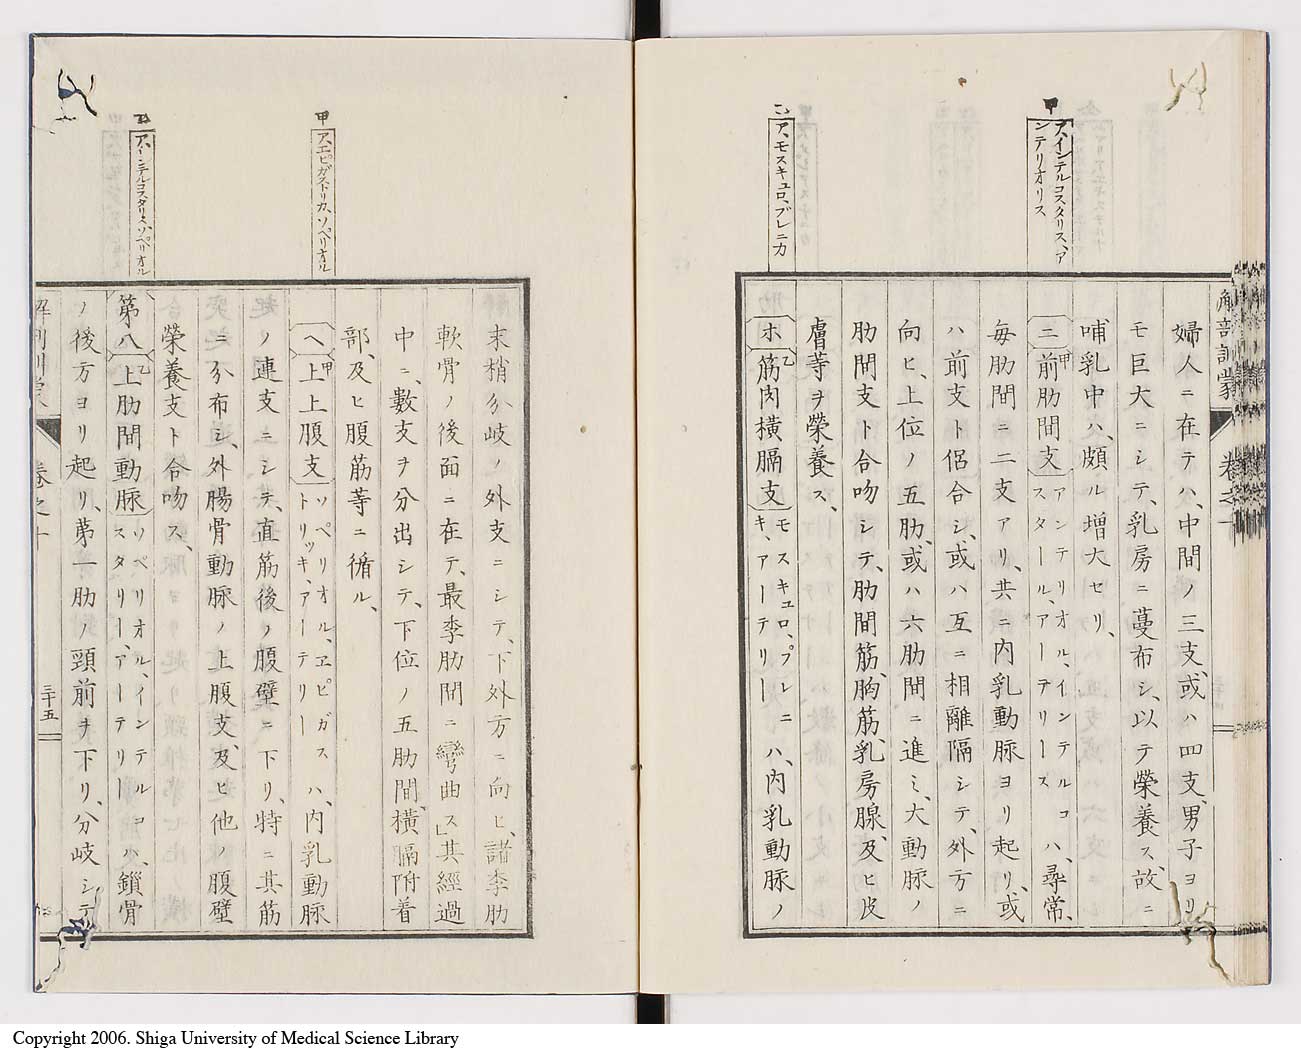 解剖訓蒙 巻之十
甲
ア、インテルコスタリス、ア
ンテリオリス
乙
ア、モスキュロ、フレニカ
婦人ニ在テハ、中間ノ三支、或ハ四支、男子ヨリ
モ巨大ニシテ、乳房ニ蔓布シ、以テ榮養ス、故ニ
哺乳中ハ、頗ル増大セリ、
ニ 甲前肋間支 アンテリオル、インテルコスタール、アーテリース ハ、尋常、
毎肋間ニ二支アリ、共ニ内乳動脈ヨリ起リ、或
ハ前支ト侶合シ、或ハ互ニ相離隔シテ、外方ニ
向ヒ、上位ノ五肋、或ハ六肋間ニ進ミ、大動脈ノ
肋間支ト合吻シテ、肋間筋、胸筋、乳房腺、及ヒ皮
膚等ヲ榮養ス、
ホ 乙筋肉横膈支 モスキュロ、フレニキ、アーテリー ハ、内乳動脈ノ
甲
ア、エピガストリカ、ソペリオル
乙
ア、インテルコスタリス、ソペリオル
末梢分岐ノ外支ニシテ、下外方ニ向ヒ、諸季肋
軟骨ノ後面ニ在テ、最季肋間ニ彎曲ス」其經過
中ニ、數支ヲ分出シテ、下位ノ五肋間、横膈附着
部、及ヒ腹筋等ニ循ル、
ヘ 甲上上腹支 ソペリオル、エピガストリッキ、アーテリー ハ、内乳動脈
ノ連支ニシテ、直筋後ノ腹壁ニ下リ、特ニ其筋
ニ分布シ、外腸骨動脈ノ上腹支、及ヒ他ノ腹壁
榮養支ト合吻ス、
第八 乙上肋間動脈 ソペリオル、インテルコスタリー、アーテリー ハ、鎖骨
ノ後方ヨリ起リ、第一肋ノ頸前ヲ下リ、分岐シテ
解剖訓蒙 巻之十 三十五
Copyright 2006. Shiga University of Medical Science Library